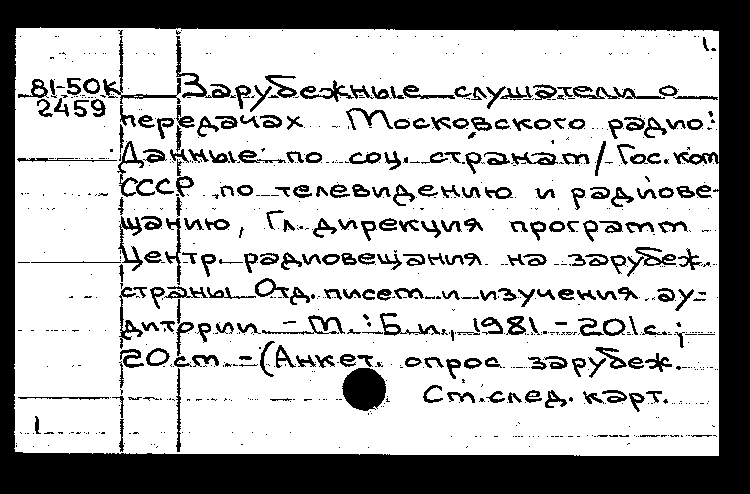 1.
81-50к Зарубежные слушатели о
2459 передачах Московского радио:
Данные по соц. странам / Гос. ком
СССР по телевидению и радиове-
щанию, Гл. дирекция программ
Центр. радиовещания на зарубеж.
страны Отд. писем и изучения ау-
дитории. - М.: Б.и., 1981. - 201с.;
20см - (Анкет. опрос зарубеж.
См. след. карт.
1